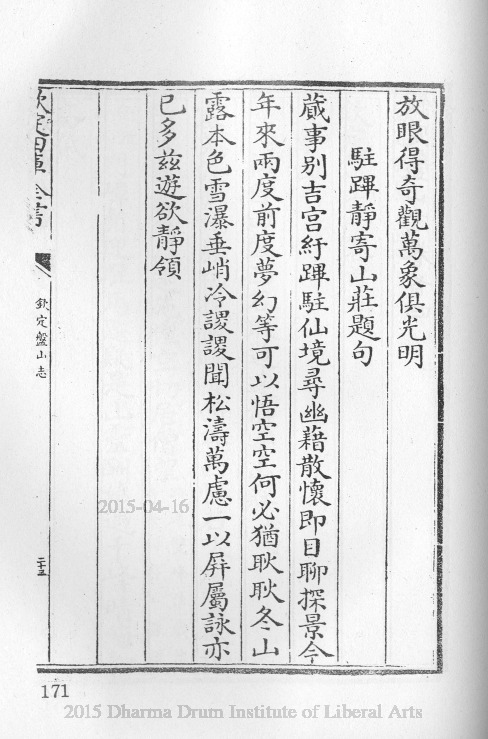 放眼得奇觀萬象俱光明
駐蹕靜寄山莊題句
蕆事別吉宮紆蹕駐仙境尋幽藉散懷即目聊探景今
年來兩度前度夢幻等可以悟空空何必猶耿耿冬山
露本色雪瀑垂峭冷謖謖聞松濤萬慮一以屏屬詠亦
已多茲遊欲靜領
欽定四庫全書
欽定盤山志
二十五
2015-04-16
171
2015 Dharma Drum Institute of Liberal Arts